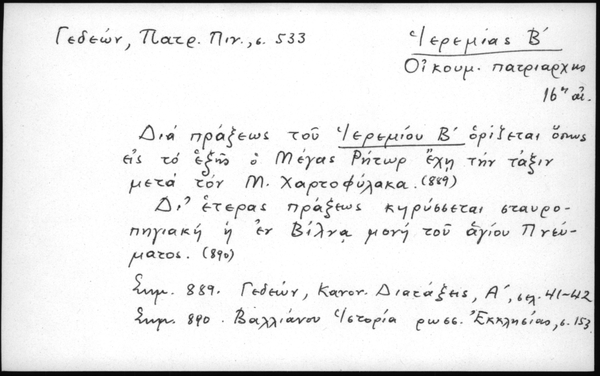 Γεδεών, Πατρ. Πιν., σ. 533
Ἱερεμίας Β΄
Οἰκουμ. πατριάρχης
16ος αἰ.
Διά πράξεως τοῦ Ἱερεμίου Β΄ ὁρίζεται ὅπως
εἰς τό ἑξῆς ὁ Μέγας Ρήτωρ ἔχῃ τήν τάξιν
μετά τόν Μ. Χαρτοφύλακα. (889)
Δι᾽ ἑτέρας πράξεως κηρύσσεται σταυρο-
πηγιακή ἡ ἐν Βίλνᾳ μονή τοῦ ἁγίου Πνεύ-
ματος. (890)
Σημ. 889. Γεδεών, Κανον. Διατάξεις, Α΄, σελ. 41-42
Σημ. 890. Βαλλιάνου Ἱστορία ρωσσ. Ἐκκλησίας, σ. 153